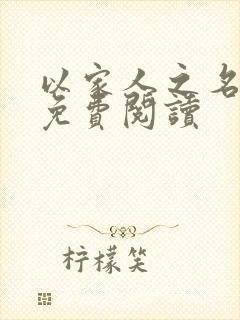 以家人之名
免費閱讀
柠檬笑